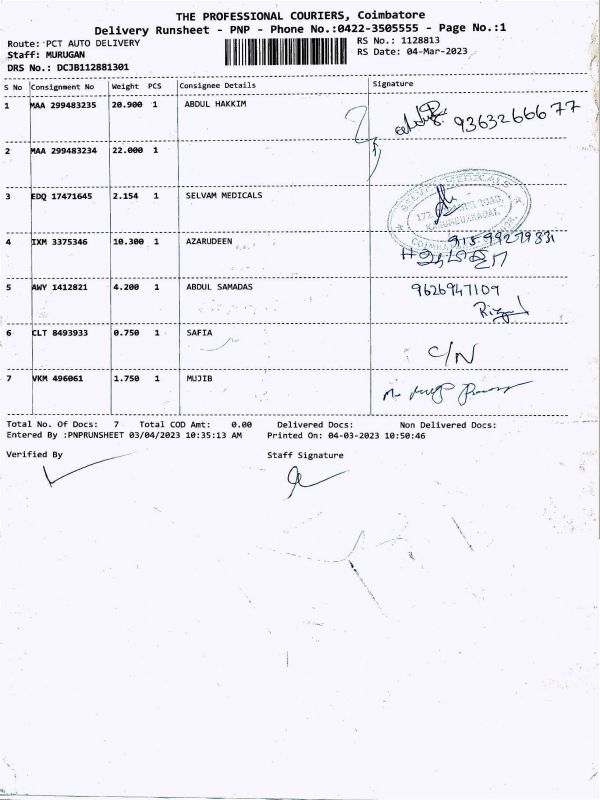 THE PROFESSIONAL COURIERS, Coimbatore
Delivery Runsheet - PNP - Phone No.:0422-3505555 - Page No.:1
Route: PCT AUTO DELIVERY
RS No.: 1128813
Staff: MURUGAN
RS Date: 04-Mar-2023
DRS No.: DCJB112881301
S No Consignment No Weight PCS Consignee Details Signature
1 MAA 299483235 20.900 1 ABDUL HAKKIM
9363266677
2 MAA 299483234 22.000 1
3 EDQ 17471645 2.154 1 SELVAM MEDICALS
4 IXM 3375346 10.300 1 AZARUDEEN
5 AWY 1412821 4.200 1 ABDUL SAMADAS 9626947109
6 CLT 8493933 0.750 1 SAFIA
C/N
7 VKM 496061 1.750 1 MUJIB
Total No. Of Docs: 7 Total COD Amt: 0.00 Delivered Docs: Non Delivered Docs:
Entered By :PNPRUNSHEET 03/04/2023 10:35:13 AM Printed On: 04-03-2023 10:50:46
Verified By Staff Signature